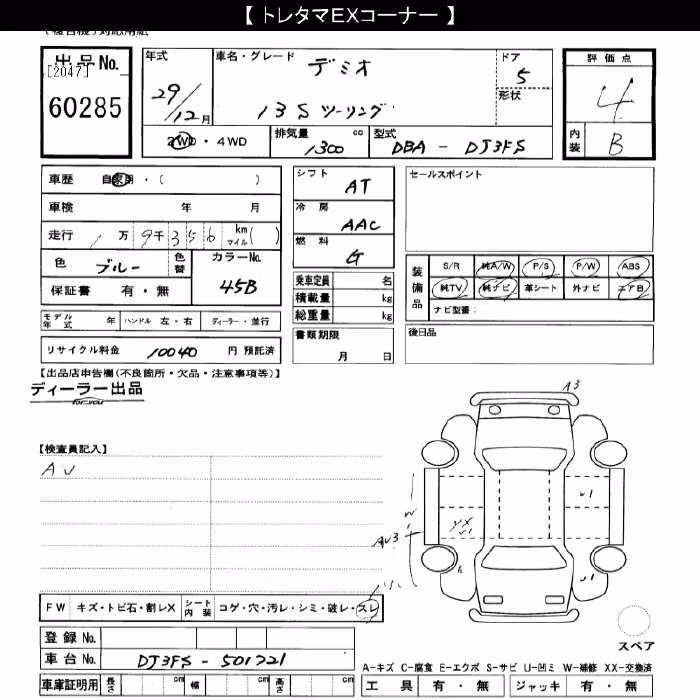 【 トレタマEXコーナー 】
(複合機)対応用紙
出品No.
[2047]
60285
年式
29/12月
車名・グレード
デミオ
13S ツーリング
ドア
5
形状
評価点
4
内装
B
2WD・4WD
排気量 1300 cc
型式 DBA - DJ3FS
車歴 自家用・( )
車検 年 月
走行 1万9千356 km マイル( )
色 ブルー
色替
カラーNo.
45B
保証書 有・無
モデル年式 年 ハンドル 左・右 ディーラー・並行
リサイクル料金 10040 円 預託済
シフト AT
冷房 AAC
燃料 G
乗車定員 名
積載量 kg
総重量 kg
書類期限
月 日
セールスポイント
装備品
S/R 純A/W P/S P/W ABS
純TV 純ナビ 革シート 外ナビ エアB
ナビ型番:
後日品
【出品店申告欄(不良箇所・欠品・注意事項等)】
ディーラー出品
for you
【検査員記入】
AU
A3
W
AU3
U1
YX
U1
U1
FW キズ・トビ石・割レX シート内装 コゲ・穴・汚レ・シミ・破レ・スレ
登録No.
車台No. DJ3FS - 501721
車庫証明用 長さ cm 幅 cm 高さ cm
スペア
A-キズ C-腐食 E-エクボ S-サビ U-凹ミ W-補修 XX-交換済
工具 有・無 ジャッキ 有・無